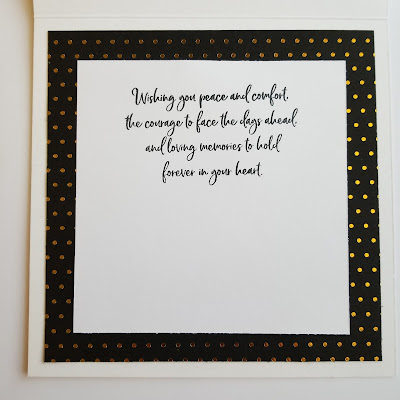 Wishing you peace and comfort,
the courage to face the days ahead,
and loving memories to hold
forever in your heart.